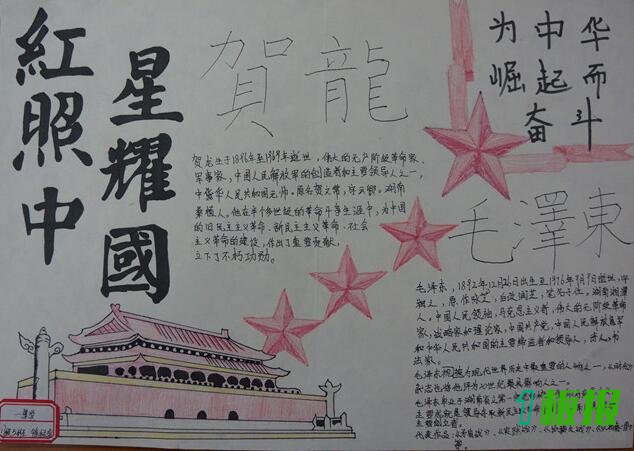 紅星照耀中國
賀龍
为中华
崛起而
奋斗
贺龙生于1896年至1969年逝世，伟大的无产阶级革命家、
军事家，中国人民解放军的创造者和主要领导人之一，
中华人民共和国元帅。原名贺文常，字云卿。湖南
桑植人。他在半个多世纪的革命斗争生涯中，为中国
的旧民主主义革命、新民主主义革命、社会
主义革命的建设，作出了重要贡献，
立下了不朽功勋。
毛澤東
毛泽东，1892年12月26日出生至1976年9月9日逝世，字
润之，原作咏芝，后改润芝，笔名子任。湖南湘潭
人。中国人民领袖，马克思主义者，伟大的无阶级革命
家，战略家和理论家，中国共产党，中国人民解放军
和中华人民共和国的主要缔造者和领导人，诗人，书
法家。
毛泽东被视为现代世界历史中最重要的人物之一，
杂志也将他评为20世纪最具影响人之一。
毛泽东毕业于湖南省
主要成就
主要创立者。
代表作品：
等。
一等奖
板报